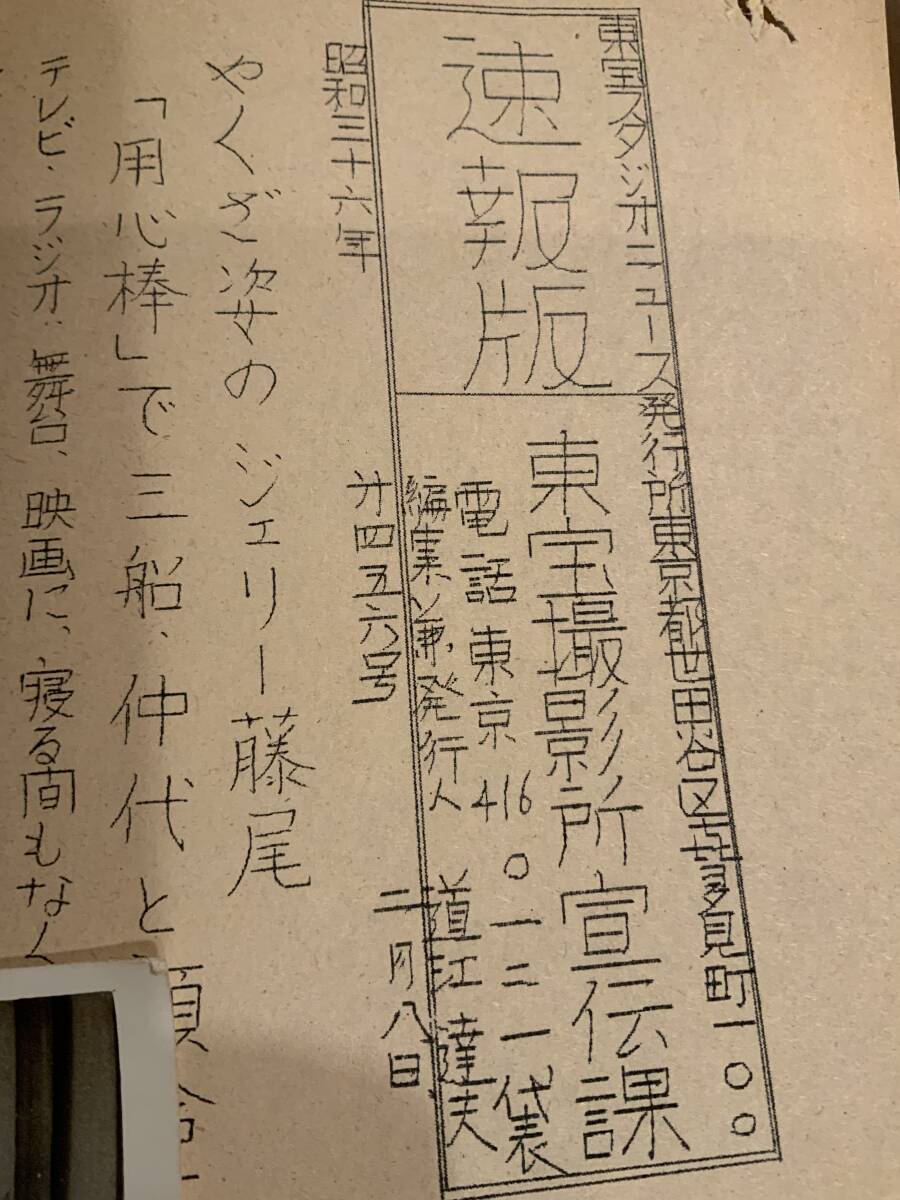 東宝スタジオニュース 発行所東京都世田谷区喜多見町一〇〇
速報版
東宝撮影所宣伝課
電話東京416〇一二一代表
編集兼発行人 道江達夫
昭和三十六年 才四五六号 二月八日
やくざ姿のジェリー藤尾
「用心棒」で三船、仲代と
テレビ、ラジオ、舞台、映画に、寝る間もなく